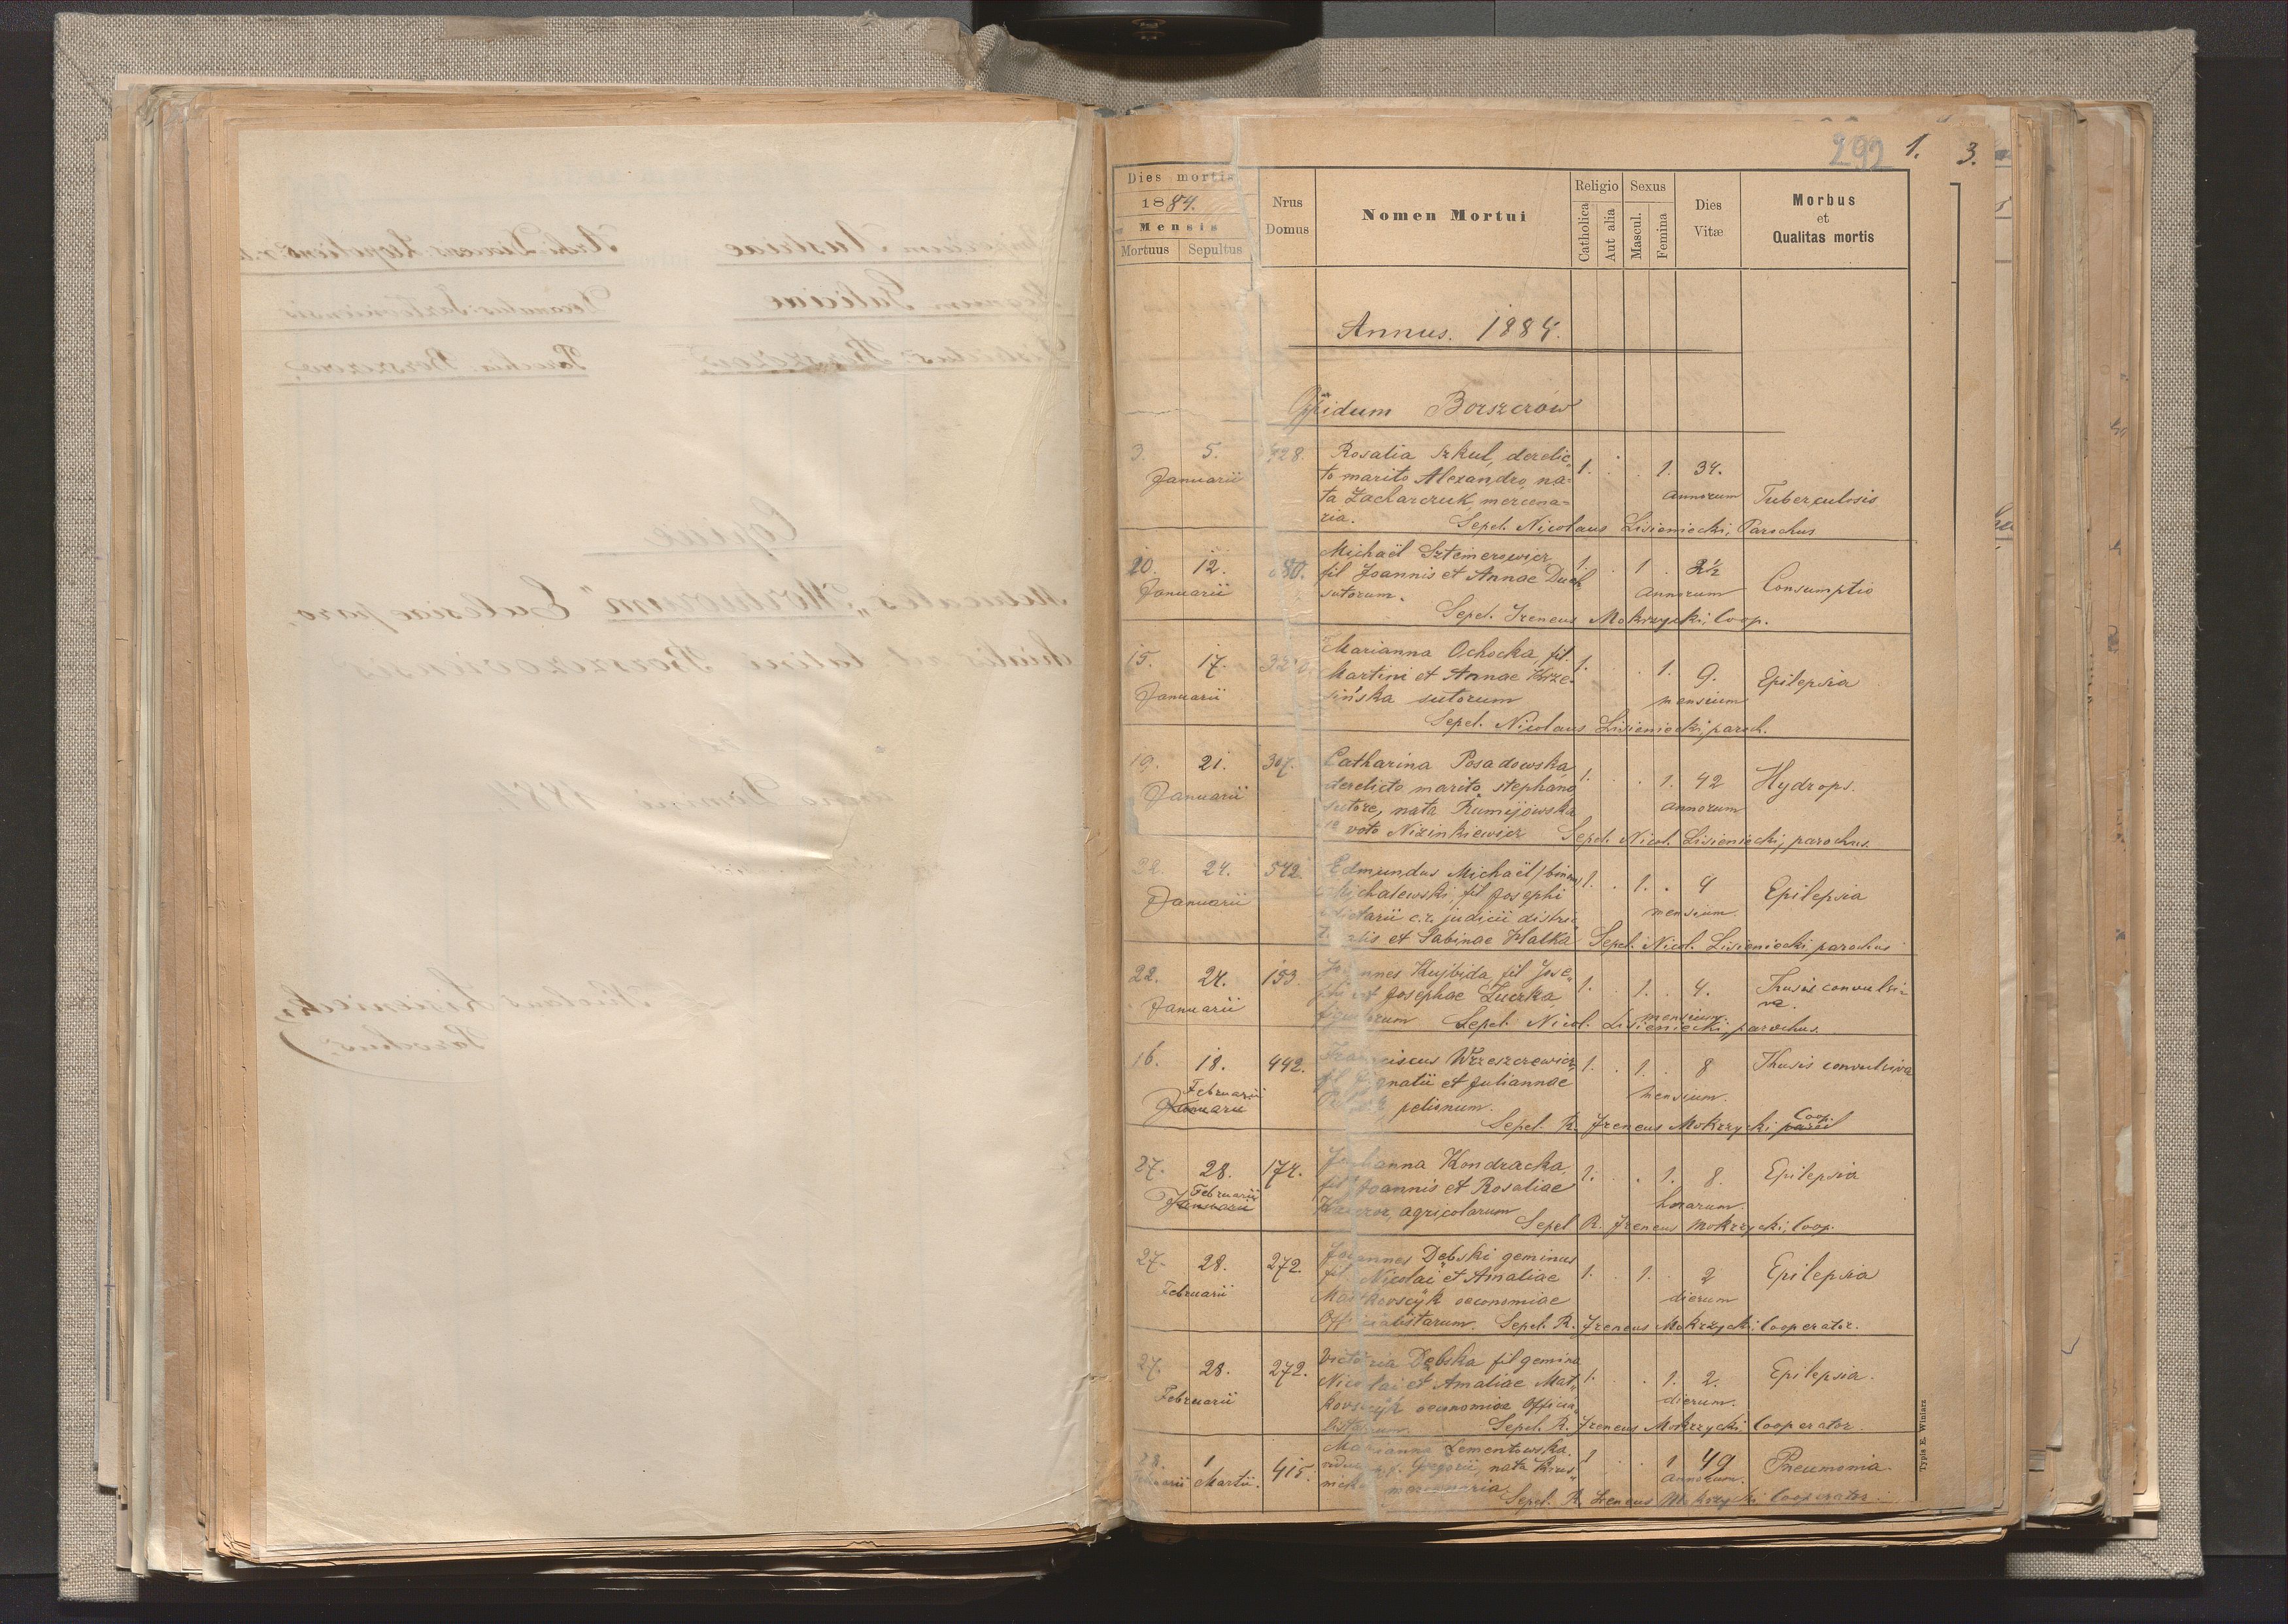 292 1. 3.
Dies mortis
1884.
Mensis
Mortuus Sepultus
Nrus
Domus
Nomen Mortui
Religio
Catholica
Aut alia
Sexus
Mascul.
Femina
Dies
Vitæ
Morbus
et
Qualitas mortis
Annus. 1884.
Oppidum Borszczów
3. 5. 428. Rosalia Szkul, derelic„ 1. . . 1. 34.
Januarii to marito Alexandro, na= annorum Tuberculosis
ta Zacharczuk, mercena=
ria. Sepel. Nicolaus Lisieniecki, Parochus
10. 12. 80. Michaël Szteinerowicz 1. . 1 . 2½
Januarii fil Joannis et Annae Duch annorum Consumptio
sutorum.
Sepel. Ireneus Mokrzycki, Coop.
15. 17. Marianna Ochocka, fil. 1. . 1. 9. Epilepsia
Januarii Martini et Annae Krze„ mensium
sińska sutorum
Sepel. Nicolaus Lisieniecki, paroch.
19. 21. 307. Catharina Posadowska, 1. . . 1. 42 Hydrops.
Januarii derelicto marito stephano annorum
sutore, nata Rumijowska
1º voto Nizinkiewicz Sepel. Nicol. Lisieniecki, parochus.
22. 24. 542. Edmundus Michaël /binom/ 1. . 1. . 4 Epilepsia
Januarii Michalewski, fil Josephi
dietarii c.r. judicii distri mensium.
alis et Sabinae Hatka Sepel. Nicol. Lisieniecki, parochus
22. 24. 153. Joannes Kujbida, fil Jose„ 1. . 1. . 4. Thusis convulsi„
Januarii phi et Josephae Luczka va.
figulorum Sepel. Nicol. Lisieniecki, parochus. mensium.
16. 18. 442. Franciscus Wrzeszczewicz 1. . 1. . 8 Thusis convulsiva
Februarii fil Ignatii et Juliannae mensium.
Januarii pelionum.
Sepel. R. Ireneus Mokrzycki Coop.
27. 28. 174. Julianna Kondracka, 1. . . 1. 8. Epilepsia
Februarii fil Joannis et Rosaliae horarum.
Januarii agricolarum
Sepel R. Ireneus Mokrzycki, Coop.
27. 28. 272. Joannes Dębski geminus
fil Nicolai et Amaliae 1. . 1. . 2 Epilepsia
Februarii Matkovscÿk oeconomiae dierum
Officialistarum. Sepel. R. Ireneus Mokrzycki, Cooperator.
27. 28. 272. Victoria Dębska fil gemina
Nicolai et Amaliae Mat„ 1. . . 1. 2. Epilepsia.
Februarii kovscÿk oeconomiae Officia„ dierum.
listarum. Sepel. R. Ireneus Mokrzycki Cooperator.
28. 1 415. Marianna Lementowska. 1 . . 1 49 Pneumonia.
Februarii Martii. Gregorii, nata annorum.
mercenaria.
Sepel. R. Ireneus Mokrzycki Cooperator.
Typis E. Winiarz